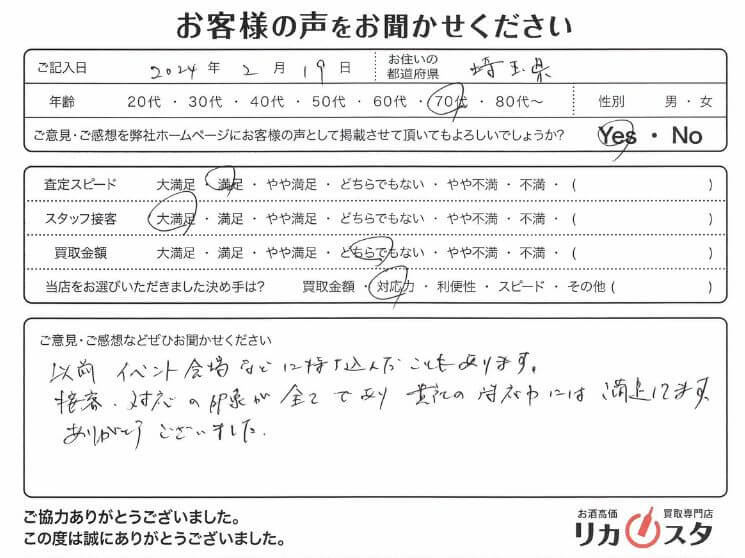 お客様の声をお聞かせください
ご記入日 2024 年 2 月 19 日 お住いの都道府県 埼玉県
年齢 20代 ・ 30代 ・ 40代 ・ 50代 ・ 60代 ・ 70代 ・ 80代〜 性別 男 ・ 女
ご意見・ご感想を弊社ホームページにお客様の声として掲載させて頂いてもよろしいでしょうか? Yes ・ No
査定スピード 大満足 ・ 満足 ・ やや満足 ・ どちらでもない ・ やや不満 ・ 不満 ・ ( )
スタッフ接客 大満足 ・ 満足 ・ やや満足 ・ どちらでもない ・ やや不満 ・ 不満 ・ ( )
買取金額 大満足 ・ 満足 ・ やや満足 ・ どちらでもない ・ やや不満 ・ 不満 ・ ( )
当店をお選びいただきました決め手は? 買取金額 ・ 対応力 ・ 利便性 ・ スピード ・ その他 ( )
ご意見・ご感想などぜひお聞かせください
以前 イベント会場などに持ち込んだこともあります。
接客、対応の印象が全てであり 貴社の対応力には 満足してます。
ありがとうございました。
ご協力ありがとうございました。
この度は誠にありがとうございました。
お酒高価 買取専門店
リカスタ